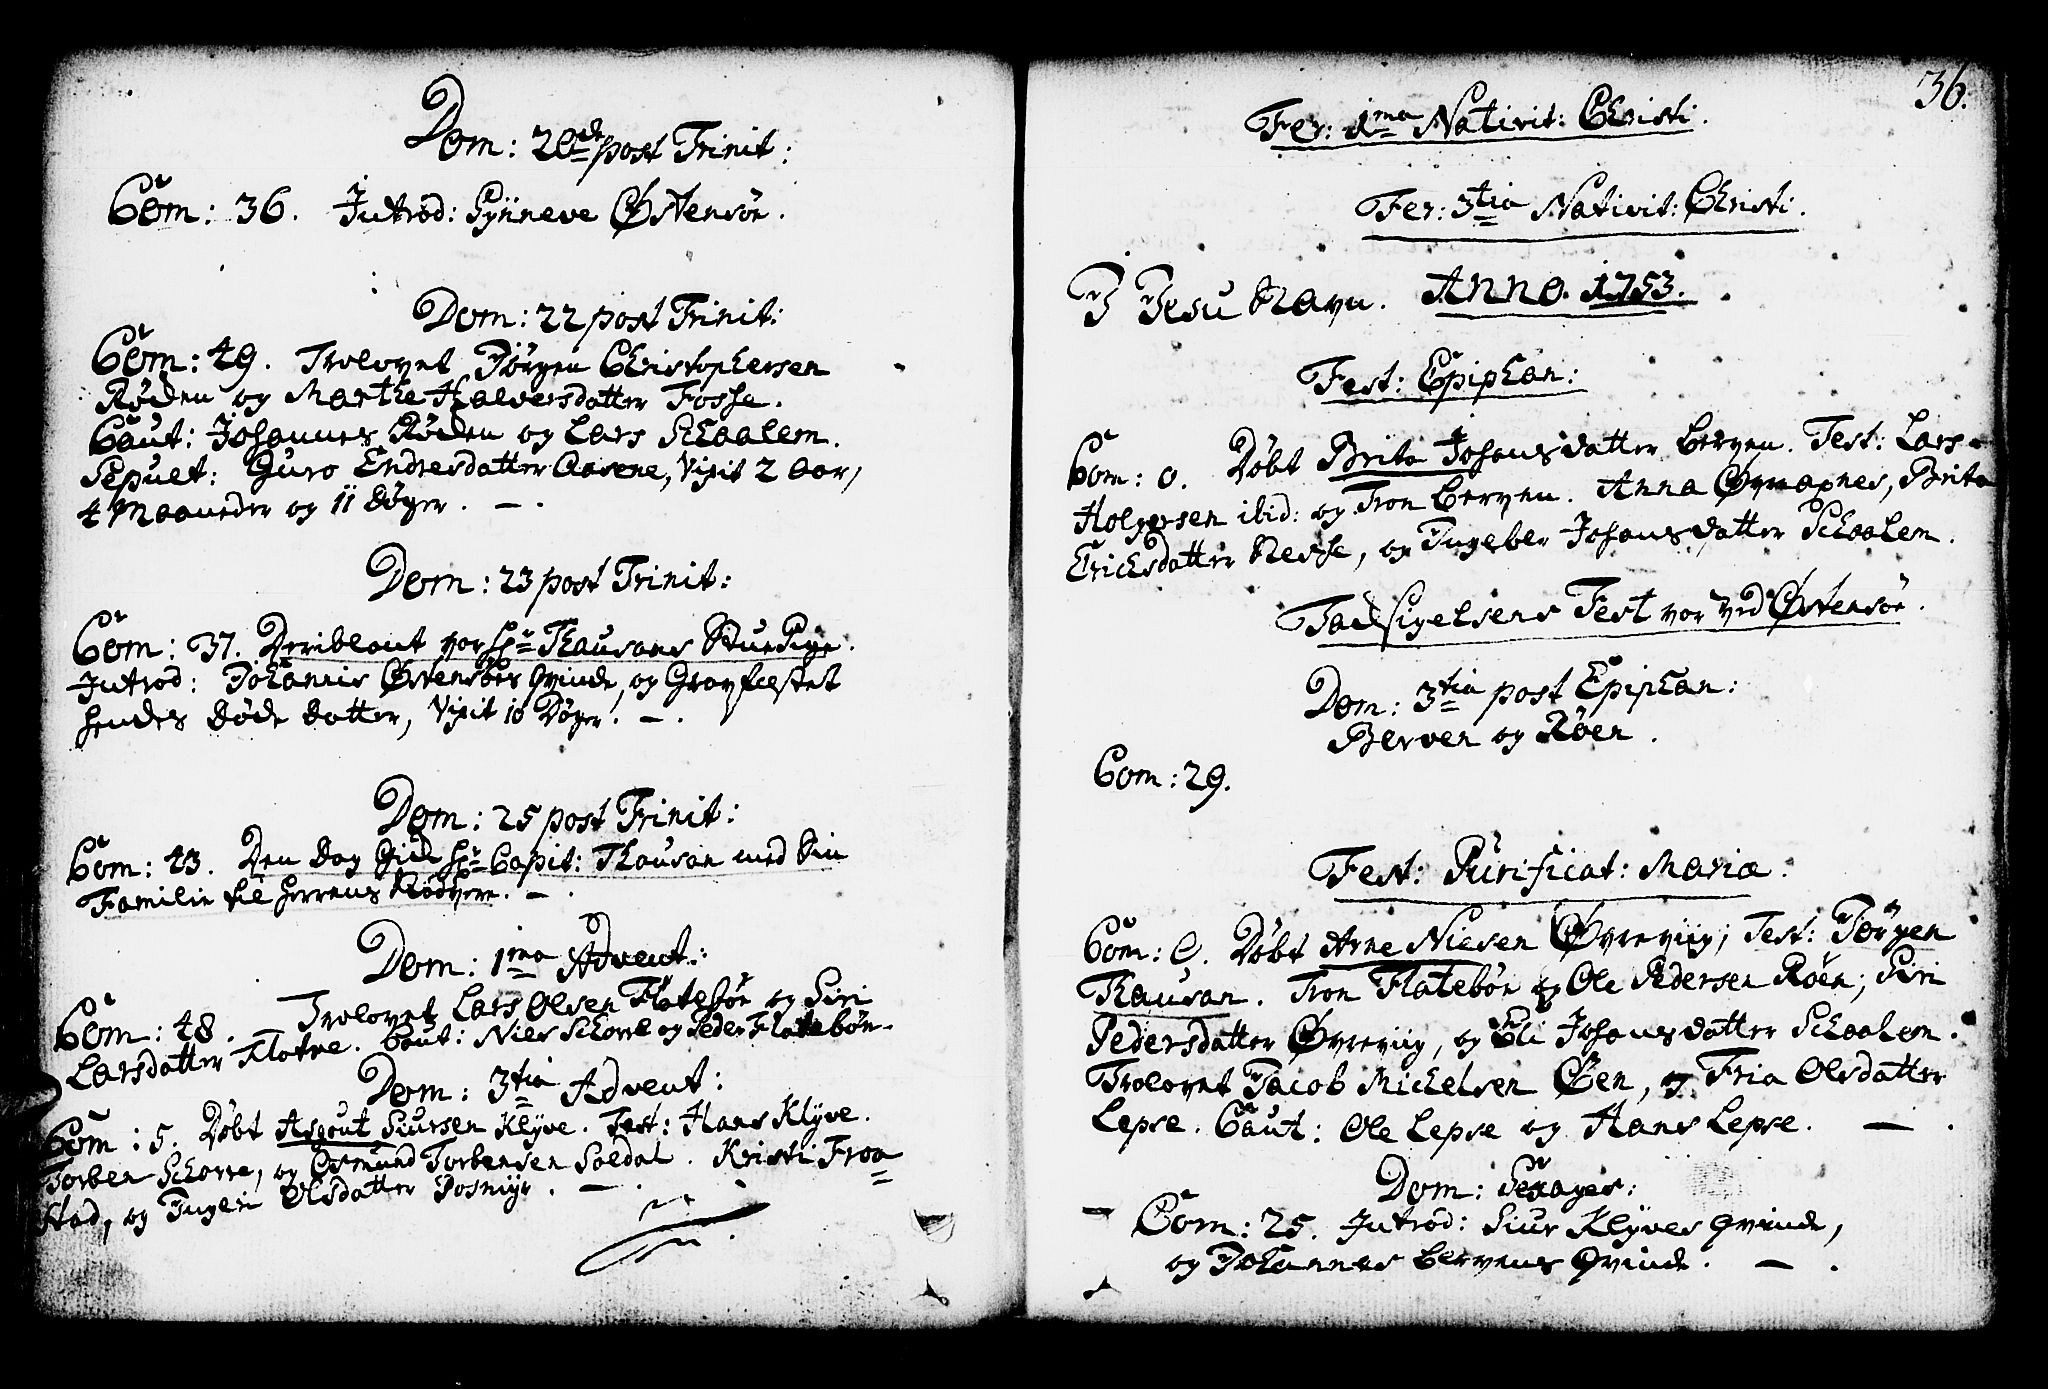 Dom: 20de post Trinit:
Com: 36. Introd: Synneve Østensøe.
Dom: 22 post Trinit:
Com: 49. Trolovet Jörgen Christophersen
Røden og Marthe Halversdatter Fosse.
Caut: Johannes Røden og Lars Schaalem.
Sepult: Guro Endresdatter Aasene, Vixit 2 Aar,
4 Maaneder og 11 Døger. — .
Dom: 23 post Trinit:
Com: 37. Deriblant var Hr Thausans StuePige.
Introd: Johannis Østensøes Qvinde, og Gravfæstet
hendes døde datter, Vixit 10 Døger. — .
Dom: 25 post Trinit:
Com: 43. Den dag Gick Hr Capit: Thausan med Sin
Familie til Herrens Nadvere. — .
Dom: 1ma Advent:
Com: 48. — Trolovet Lars Olsen Flatebøe og Siri
Larsdatter Flotve. Caut: Niels Schorre og Peder Flatebøe.
Dom: 3tia Advent:
Com: 5. Døbt Asgout Siursen Klyve. Test: Hans Klyve.
Torben Schorre, og Osmund Torbensen Soldal. Kristi Froa=
stad, og Ingeri Olsdatter Posmyr. — .
36.
Fer: 1ma Nativit: Christi.
Fer: 3tia Nativit: Christi.
I Jesu Navn. Anno. 1753.
Fest: Epiphan:
Com: 0. Døbt Brita Johansdatter Berven. Test: Lars
Holgersen ibid: og Tron Berven. Anna , Brita
Ericksdatter Nesse, og Ingeber Johansdatter Schaalem.
Tacksigelsens Fest var ved Østensøe.
Dom: 3tia post Epiphan:
Berven og Røen.
Com: 29.
Fest: Purificat: Mariæ:
Com: 0. Døbt Arne Nielsen Øvreviig; Test: Jørgen
Thausan. Tron Flatebøe og Ole Pedersen Røen; Siri
Pedersdatter Øvreviig, og Eli Johansdatter Schaalem.
Trolovet Jacob Michelsen Øen, og Fria Olsdatter
Lepse. Caut: Ole Lepse og Hans Lepse. — .
Dom: Sexages:
Com: 25. Introd: Siur Klyves Qvinde,
og Johannes Bervens Qvinde. — .